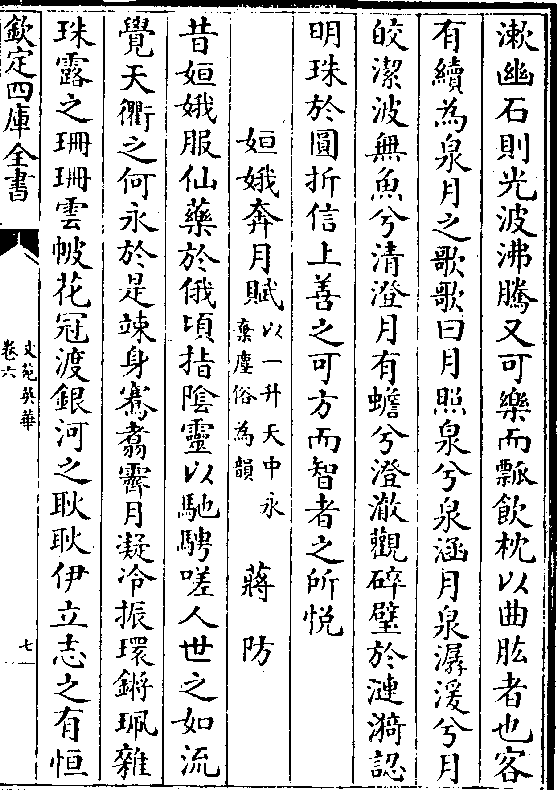 漱幽石則光波沸騰又可樂而瓢飲枕以曲肱者也客
有續為泉月之歌歌曰月照泉兮泉涵月泉潺湲兮月
皎潔波無魚兮清澄月有蟾兮澄澈觀碎璧於漣漪認
明珠於圓折信上善之可方而智者之所悦
姮娥奔月賦以一升天中永棄塵俗為韻 蔣防
昔姮娥服仙藥於俄頃指陰靈以馳騁嗟人世之如流
覺天衢之何永於是竦身騫翥霽月凝冷振環鏘珮雜
珠露之珊珊雲帔花冠渡銀河之耿耿伊立志之有恒
欽定四庫全書
文苑英華
卷六
七